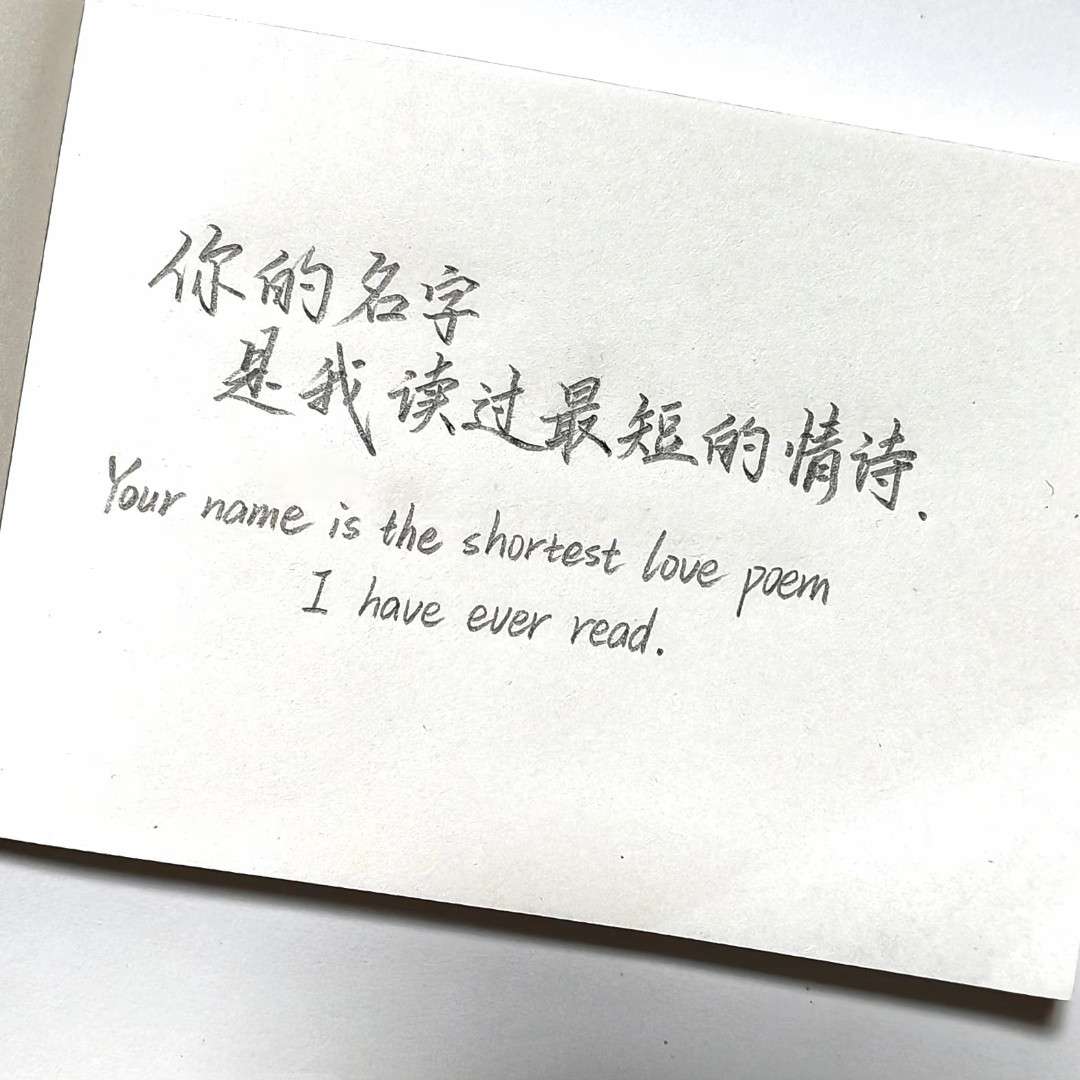 你的名字
是我读过最短的情诗.
Your name is the shortest love poem
I have ever read.